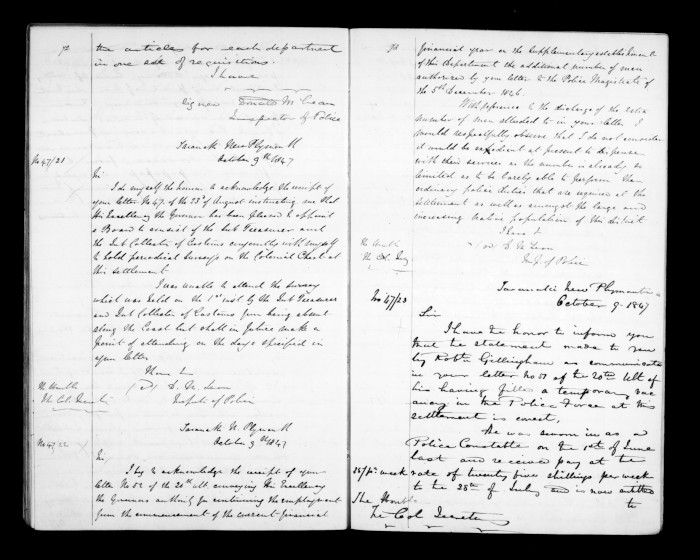 the articles for each department
in one set of requisitions.
I have
Signed Donald McLean
Inspector of Police
Taranaki New Plymouth
October 9th 1847
No 47/21
Sir
I do myself the honor to acknowledge the receipt of
your letter No 47 of the 23rd of August instructing me that
His Excellency the Governor has been pleased to appoint
a Board to consist of the Sub Treasurer and
the Sub Collector of Customs conjointly with myself
to hold periodical Surveys on the Colonial Chest at
this settlement
I was unable to attend the survey
which was held on the 1st inst by the Sub Treasurer
and Sub Collector of Customs from being absent
along the Coast but shall in future make a
point of attending on the days specified in
your letter
I have &c
(sd) D. McLean
Inspector of Police
The Honble
The Col. Secretary
Taranaki N. Plymouth
October 9th 1847
No 47/22
Sir,
I beg to acknowledge the receipt of your
letter No 52 of the 20th ult conveying His Excellency
the Governors authority for continuing the employment
from the commencement of the current financial
financial year on the Supplementary establishment
of this Department the additional number of men
authorized by your letter to the Police Magistrate of
the 5th December 1846.
With reference to the discharge of the extra
number of men alluded to in your letter I
would respectfully observe that I do not consider
it would be expedient at present to dispense
with their services as the number is already so
limited as to be barely able to perform the
ordinary police duties that are required at the
settlement as well as amongst the large and
increasing native population of this district
I have &c
(sd) D. McLean
Insp. of Police
The Honble
The Col. Secy
Taranaki New Plymouth
October 9. 1847
No 47/23
Sir
I have the honor to inform you
that the statement made to you
by Robt Gillingham as communicated
in your letter no 51 of the 20th Ult of
his having filled a temporary vac
ancy in the Police Force at this
settlement is correct,
He was sworn in as a
Police Constable on the 1st of June
last and received pay at the
25/ pr week rate of twenty five shillings per week
to the 28th of July and is now entitled
to
The Honble
The Col Secretary